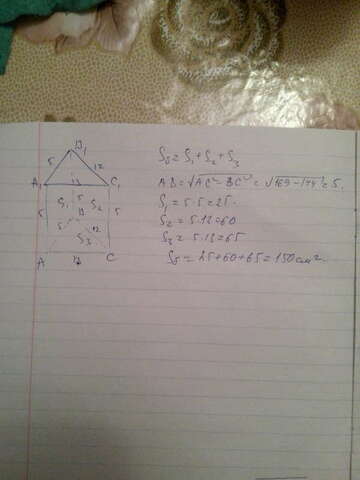 B₁
5 12
A₁ 13 C₁
S₁ 5 S₂
5 B 5
5 12
S₃
A 13 C
Sб = S₁ + S₂ + S₃
AB = √AC² - BC² = √169-144 = 5.
S₁ = 5·5 = 25.
S₂ = 5·12 = 60
S₃ = 5·13 = 65
Sб = 25+60+65 = 150 см².